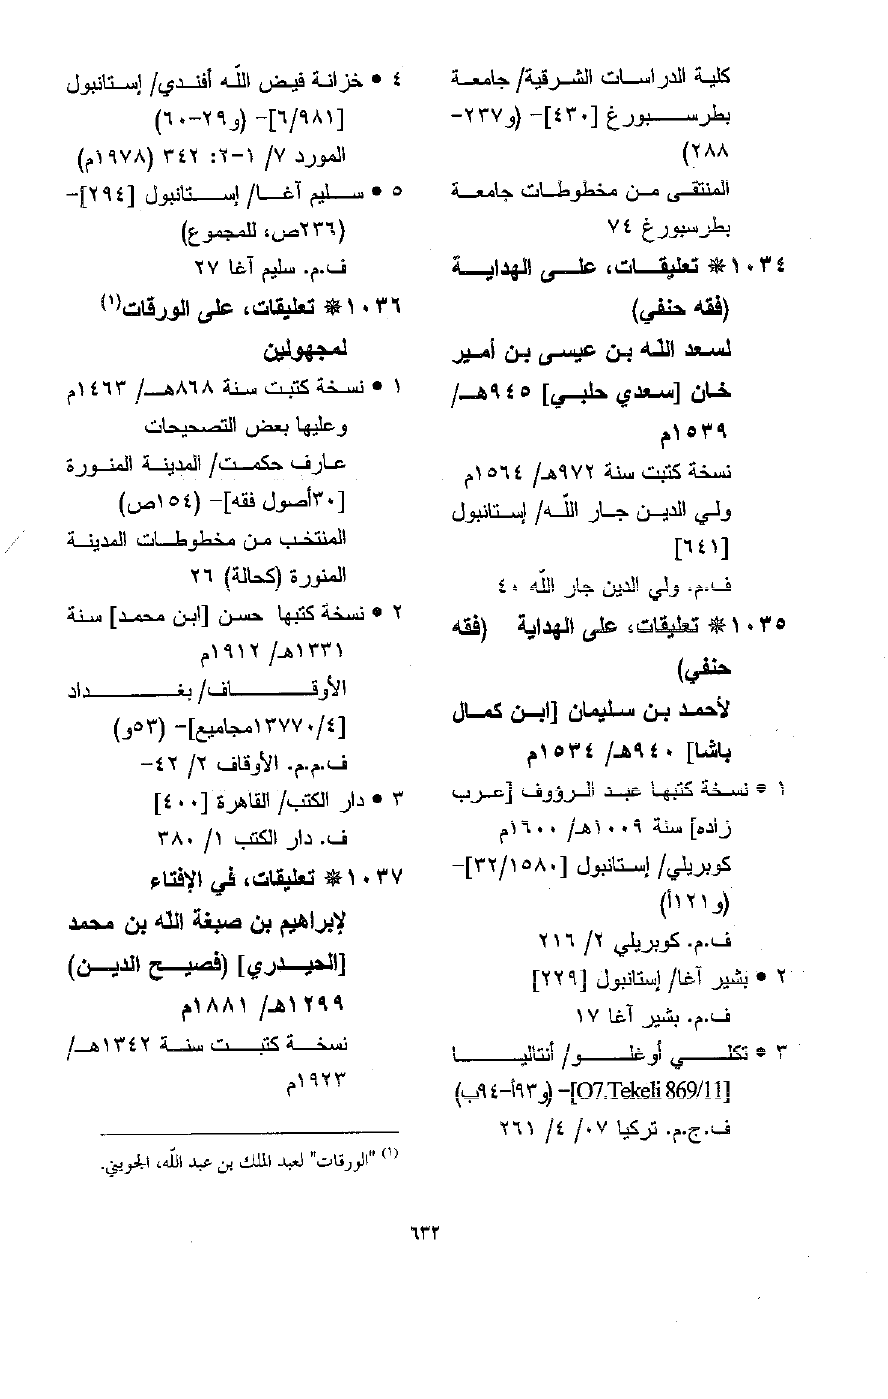 كلية الدراسات الشرقية/ جامعة
بطرسبورغ [٤٣٠]- (و٢٣٧-
٢٨٨)
المنتقى من مخطوطات جامعة
بطرسبورغ ٧٤
١٠٣٤ * تعليقات، على الهداية
(فقه حنفي)
لسعد الله بن عيسى بن أمير
خان [سعدي حلبي] ٩٤٥هـ/
١٥٣٩م
نسخة كتبت سنة ٩٧٢هـ/ ١٥٦٤م
ولي الدين جار الله/ إستانبول
[٦٤١]
ف.م. ولي الدين جار الله ٤٠
١٠٣٥ * تعليقات، على الهداية (فقه
حنفي)
لأحمد بن سليمان [ابن كمال
باشا] ٩٤٠هـ/ ١٥٣٤م
١ * نسخة كتبها عبد الرؤوف [عرب
زاده] سنة ١٠٠٩هـ/ ١٦٠٠م
كوبريلي/ إستانبول [٣٢/١٥٨٠]-
(و١٢١أ)
ف.م. كوبريلي ٢/ ٢١٦
٢ • بشير آغا/ إستانبول [٢٢٩]
ف.م. بشير آغا ١٧
٣ * تكلي أوغلو/ أنتاليا
[O7.Tekeli 869/11]- (و٩٣أ-٩٤ب)
ف.ج.م. تركيا ٠٧/ ٤/ ٢٦١
٤ • خزانة فيض الله أفندي/ إستانبول
[٦/٩٨١]- (و٢٩-٦٠)
المورد ٧/ ١-٢: ٣٤٢ (١٩٧٨م)
٥ • سليم آغا/ إستانبول [٢٩٤]-
(٢٣٦ص، للمجموع)
ف.م. سليم آغا ٢٧
١٠٣٦ * تعليقات، على الورقات(١)
لمجهولين
١ • نسخة كتبت سنة ٨٦٨هـ/ ١٤٦٣م
وعليها بعض التصحيحات
عارف حكمت/ المدينة المنورة
[٣٠أصول فقه]- (١٥٤ص)
المنتخب من مخطوطات المدينة
المنورة (كحالة) ٢٦
٢ * نسخة كتبها حسن [ابن محمد] سنة
١٣٣١هـ/ ١٩١٢م
الأوقاف/ بغداد
[١٣٧٧٠/٤مجاميع]- (٥٣و)
ف.م.م. الأوقاف ٢/ ٤٢-
٣ • دار الكتب/ القاهرة [٤٠٠]
ف. دار الكتب ١/ ٣٨٠
١٠٣٧ * تعليقات، في الإفتاء
لإبراهيم بن صبغة الله بن محمد
[الحيدري] (فصيح الدين)
١٢٩٩هـ/ ١٨٨١م
نسخة كتبت سنة ١٣٤٢هـ/
١٩٢٣م
(١) "الورقات" لعبد الملك بن عبد الله، الجويني.
٦٣٢